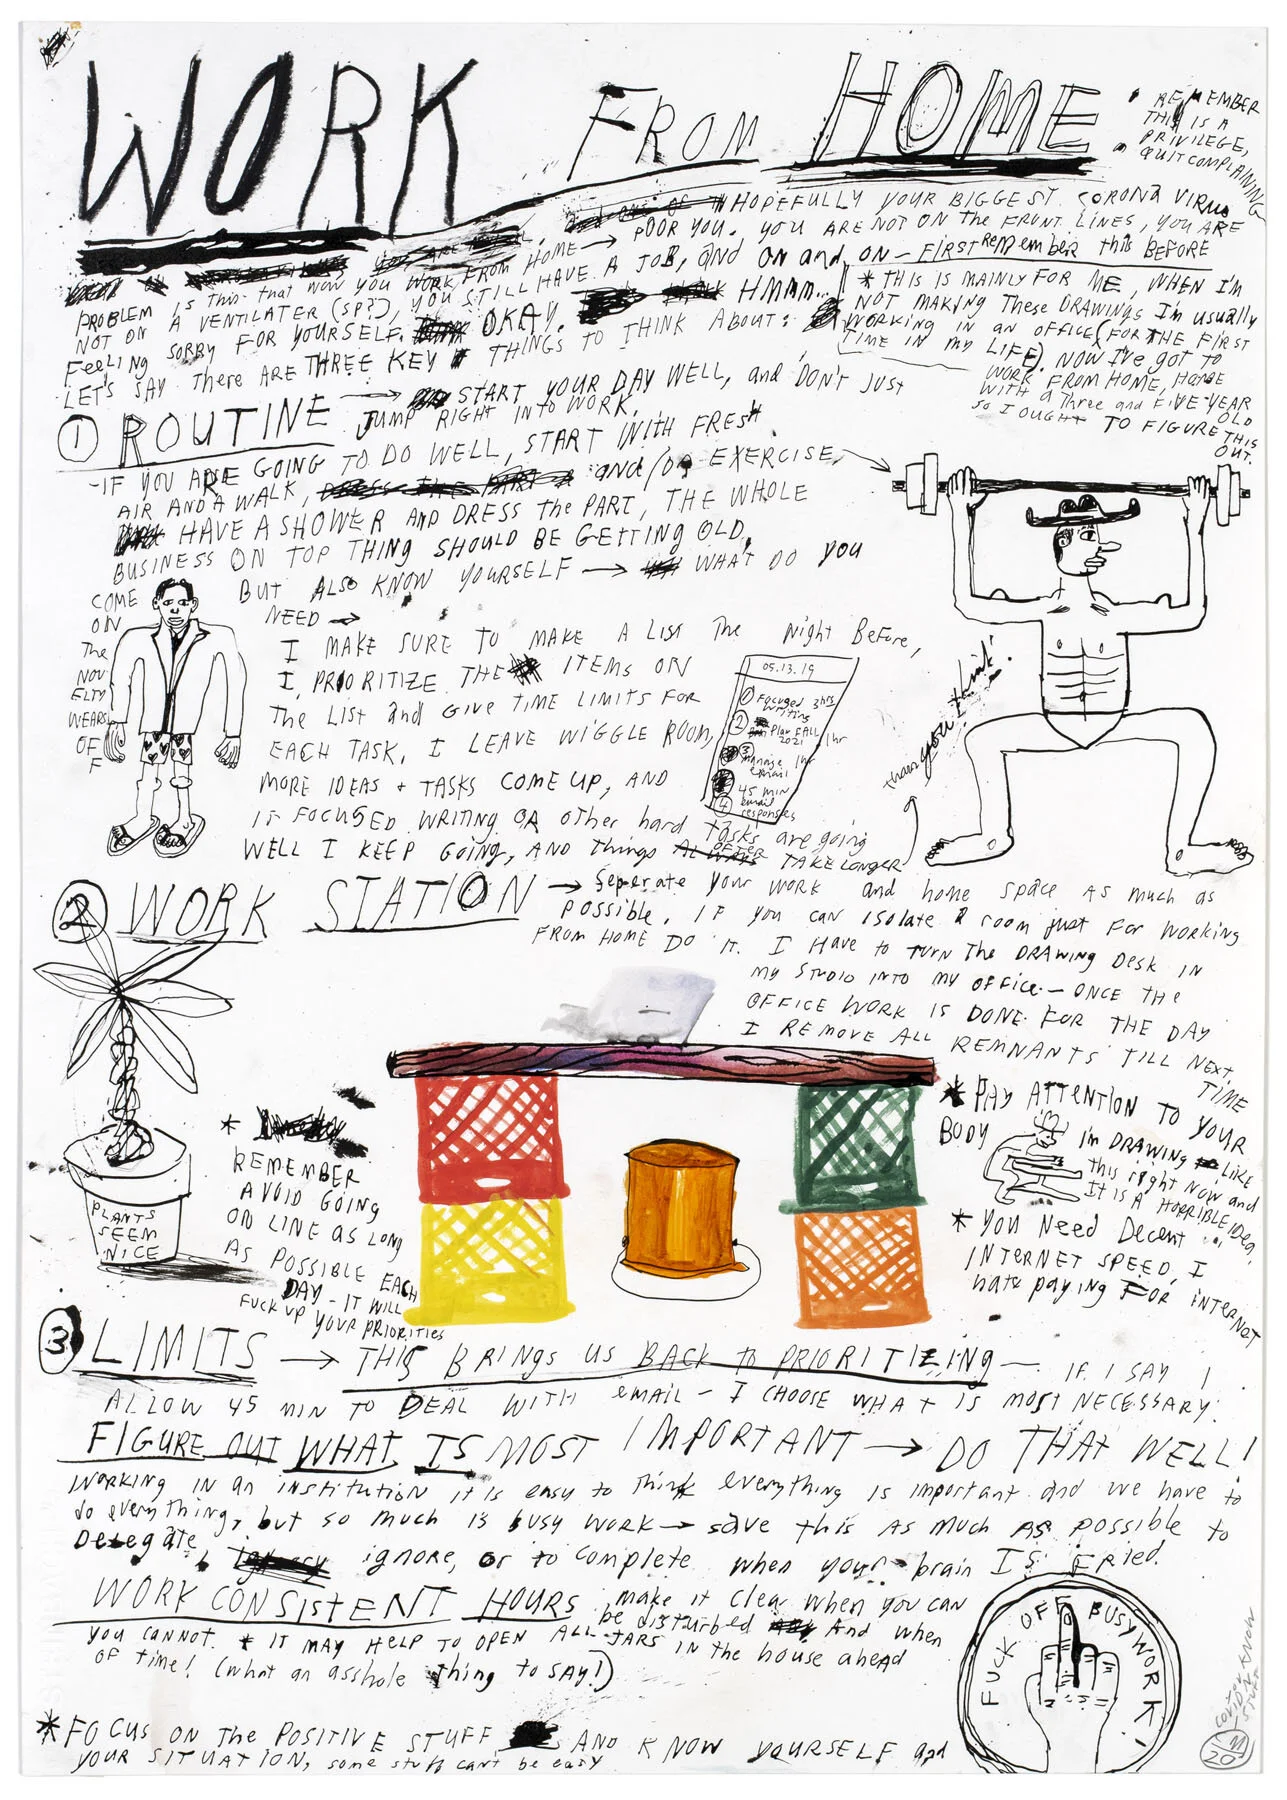 WORK FROM HOME
REMEMBER
THIS IS A
PRIVILEGE,
QUIT COMPLAINING
HOPEFULLY YOUR BIGGEST CORONA VIRUS
PROBLEM IS this- that NOW YOU WORK FROM HOME → POOR YOU. YOU ARE NOT ON THE FRONT LINES, YOU ARE
NOT ON A VENTILATER (SP?), YOU STILL HAVE A JOB, and ON and ON - FIRST REMEMBER this BEFORE
FEELING SORRY FOR YOURSELF. OKAY. HMMM...
LET'S SAY There ARE THREE KEY THINGS TO THINK ABOUT:
* THIS IS MAINLY FOR ME, WHEN I'M
NOT MAKING These DRAWINGS I'm usually
WORKING IN an OFFICE (FOR THE FIRST
TIME IN MY LIFE). NOW I'VE GOT TO
WORK FROM HOME, HOME
WITH a Three and FIVE YEAR OLD
SO I OUGHT TO FIGURE THIS
OUT.
① ROUTINE → START YOUR DAY WELL, and DON'T JUST
JUMP RIGHT INTO WORK.
-IF YOU ARE GOING TO DO WELL, START WITH FRESH
AIR AND A WALK, and/OR EXERCISE,
HAVE A SHOWER AND DRESS the PART, THE WHOLE
BUSINESS ON TOP THING SHOULD BE GETTING OLD,
BUT ALSO KNOW YOURSELF → WHAT DO YOU
NEED →
COME
ON
The
NOV
ELTY
WEARS
OF
F
I MAKE SURE TO MAKE A LIST The Night BEFORE,
I PRIORITIZE THE ITEMS ON
The LIST and GIVE TIME LIMITS FOR
EACH TASK, I LEAVE WIGGLE ROOM,
MORE IDEAS + TASKS COME UP, AND
IF FOCUSED WRITING OR other hard tasks are going
WELL I KEEP GOING, AND things ALWAYS OFTEN TAKE Longer
05.13.19
① Focused 3hrs
writing
② Plan FALL 1hr
2021
③ manage 1hr
email
④ 45 min
email
responses
thank you think!
② WORK STATION → Seperate your WORK and home space AS much as
possible. IF you can isolate a room just FOR Working
FROM HOME DO IT. I HAVE to TURN The DRAWING DESK IN
MY STUDIO INTO MY OFFICE - ONCE THE
OFFICE WORK IS DONE FOR THE DAY
I REMOVE ALL REMNANTS TILL NEXT
TIME
PLANTS
SEEM
NICE
*
REMEMBER
AVOID GOING
ON LINE AS LONG
AS POSSIBLE EACH
DAY - IT WILL
FUCK UP YOUR PRIORITIES
* PAY ATTENTION TO YOUR
BODY
I'm DRAWING LIKE
this right NOW and
IT IS A HORRIBLE IDEA.
* YOU NEED Decent
INTERNET SPEED, I
hate paying FOR INTERNET
③ LIMITS → THIS BRINGS US BACK to PRIORITIZING — IF I SAY I
ALLOW 45 MIN TO DEAL WITH email - I CHOOSE WHAT IS MOST NECESSARY.
FIGURE OUT WHAT IS MOST IMPORTANT → DO THAT WELL!
WORKING IN an institution it is easy to think everything is important and we have to
do everything, but so much is busy WORK → save this AS much AS possible to
Delegate, ignore, or to complete when your brain IS FRIED.
WORK CONSISTENT HOURS make it clear when you can
be disturbed And when
you CANNOT. * IT MAY HELP TO OPEN ALL JARS IN the house ahead
OF time! (what an asshole thing to SAY!)
FUCK OFF BUSYWORK!
* FOCUS ON The POSITIVE STUFF AND KNOW YOURSELF and
YOUR SITUATION, some stuff can't be easy